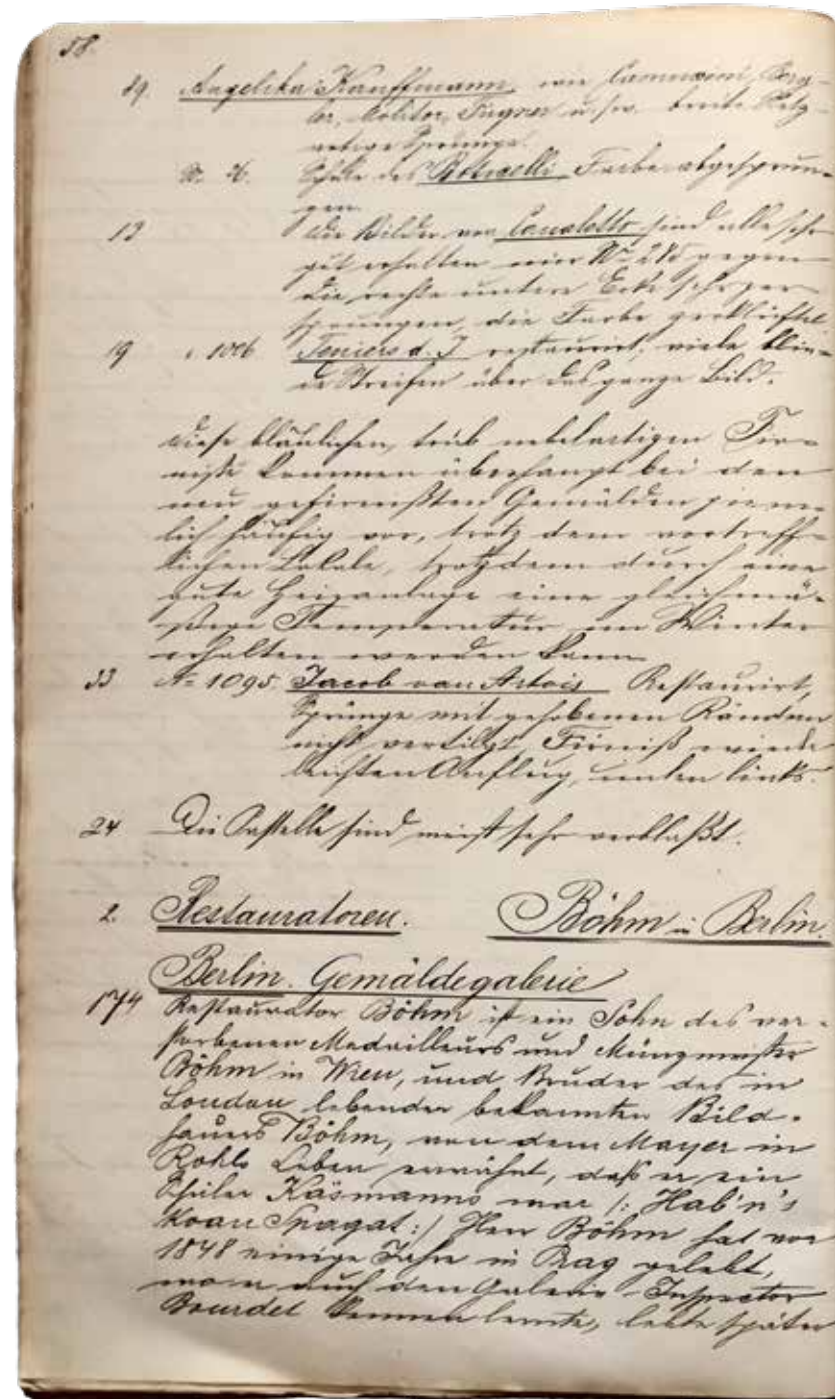 58.
89. Angelika Kauffmann, wie Camuccini, Berg-
ler, Füger u. s. w. breite Netz-
artige Sprünge.
No. 26. Schule des Boticelli Farbe abgesprun-
gen.
13 Die Bilder von Canaletto sind alle sehr
gut erhalten nur No 285 gegen
die rechte untere Ecke sehr zer-
sprungen, die Farbe zerklüftet.
19 " 1006 Teniers d. J restaurirt; viele blin-
de Streifen über das ganze Bild.
Diese bläulichen, trüb nebelartigen Fir-
nisse kommen überhaupt bei den
neu gefirnißten Gemälden ziem-
lich häufig vor, trotz dem vortreff-
lichen Lokale, trotzdem durch eine
gute Heizanlage eine gleichmä-
ßige Temperatur im Winter
erhalten werden kann
33 No 1095. Jacob van Artois Restaurirt,
Sprünge mit gehobenen Rändern
nicht vertilgt, Firniß wieder
leichten Anflug, unten links.
24 Die Pastelle sind meist sehr verblaßt.
2. Restauratoren. Böhm in Berlin.
Berlin. Gemäldegalerie
174 Restaurator Böhm ist ein Sohn des ver-
storbenen Medailleurs und Münzmeister
Böhm in Wien, und Bruder des in
London lebender bekannten Bild-
hauers Böhm, von dem Mayer in
Rahls Leben erwähnt, daß er ein
Schüler Käsmanns war /: Hab'n's
Koan Spagat :/ Herr Böhm hat vor
1848 einige Jahre in Prag gelebt,
wo er auch den Galerie-Inspector
Bourdet kennen lernte, lebte später